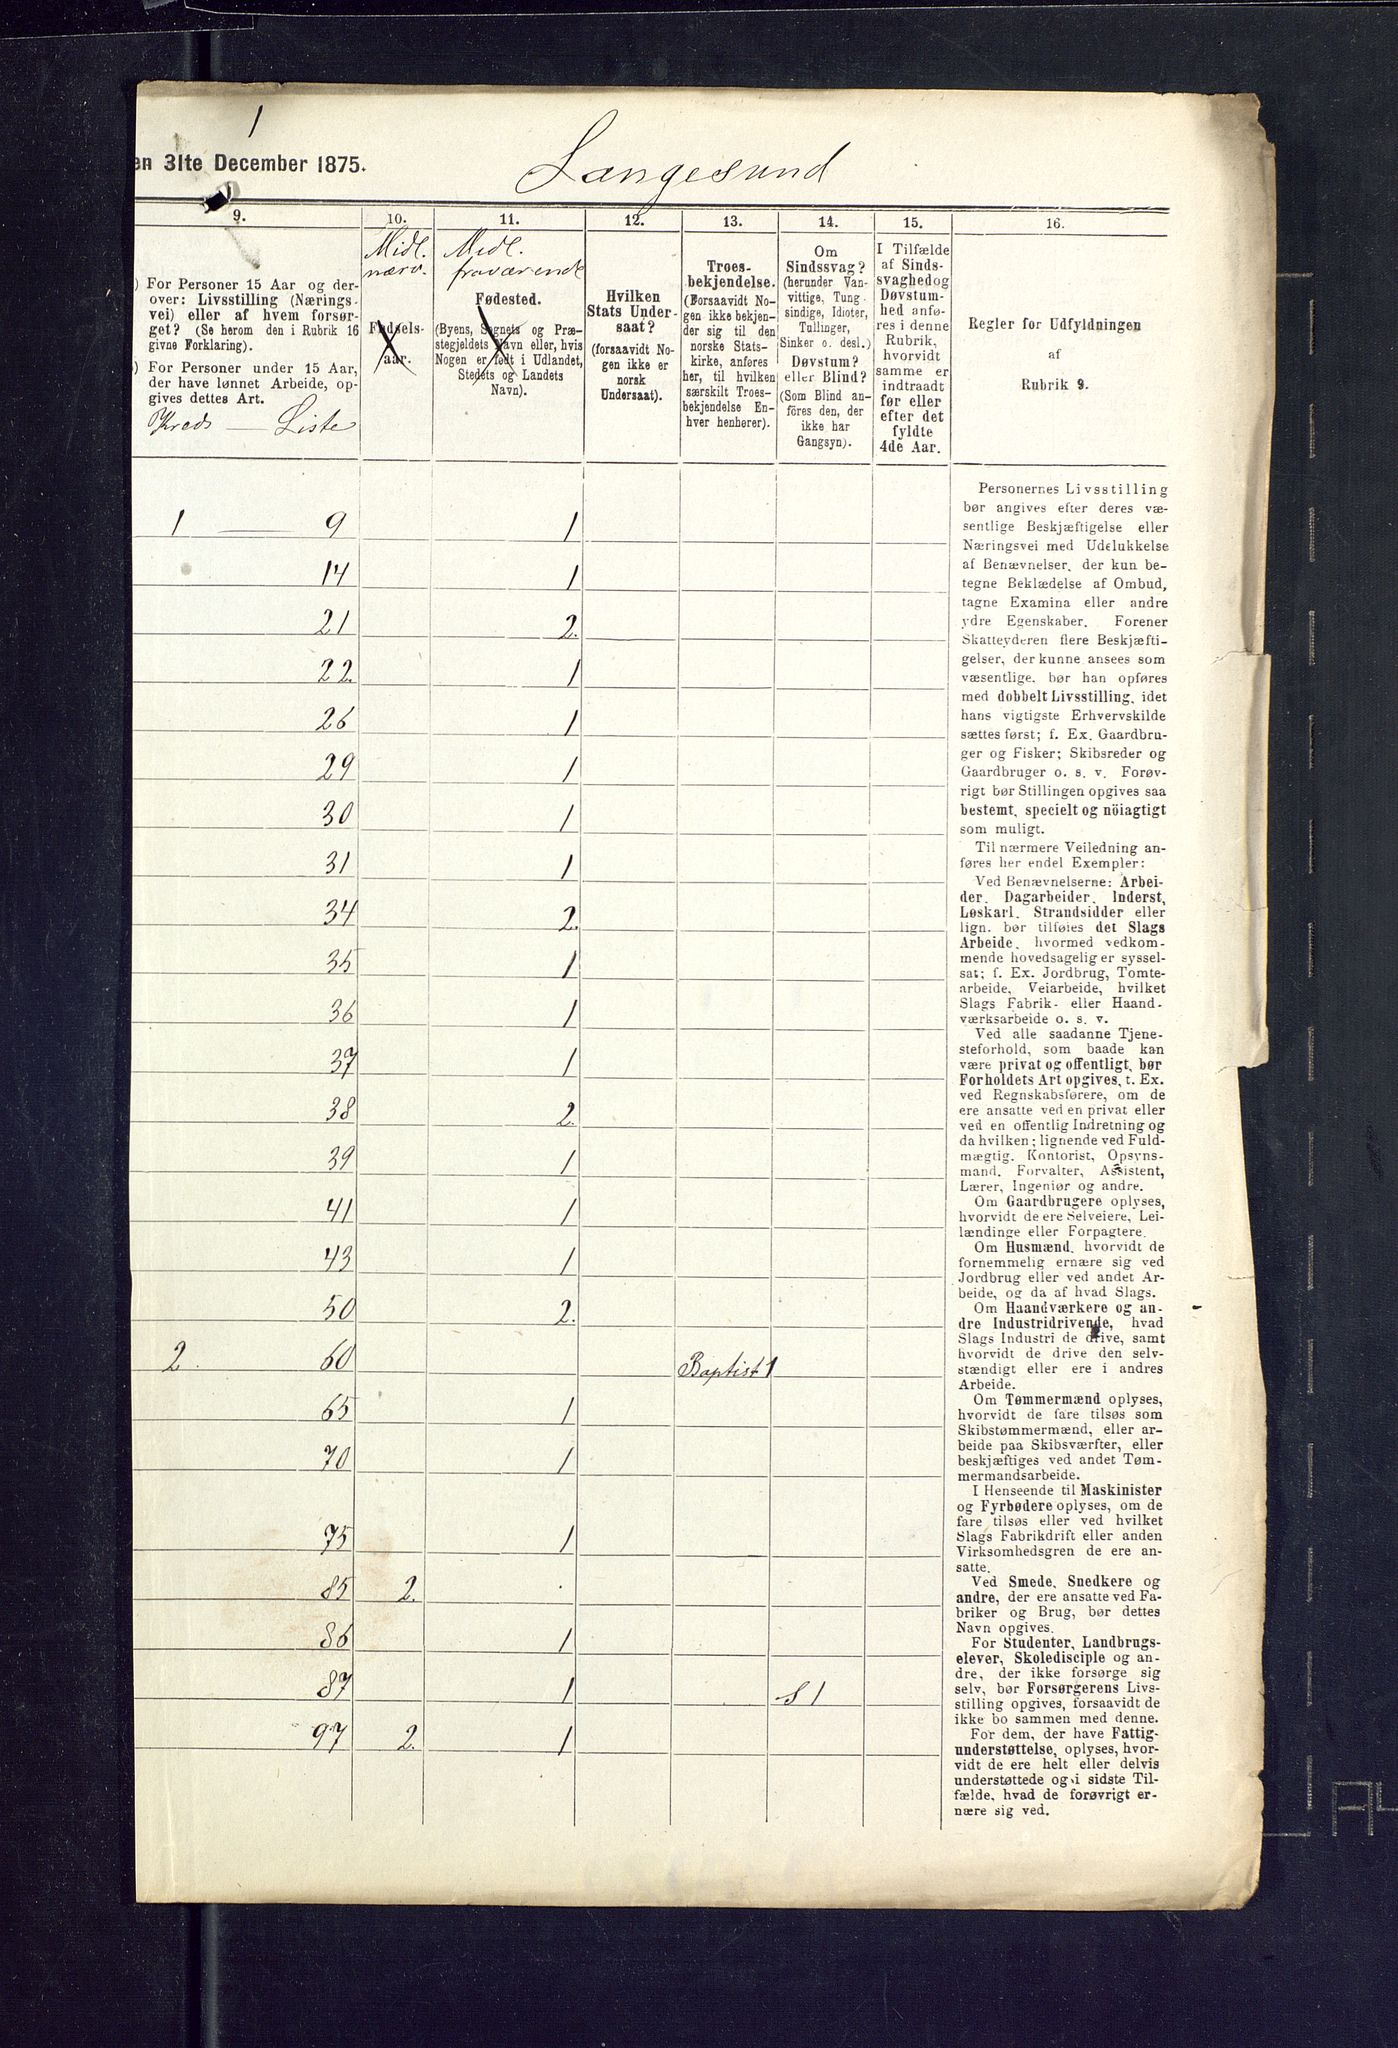 1
en 31te December 1875.
Langesund
9. 10. 11. 12. 13. 14. 15. 16.
) For Personer 15 Aar og der-
over: Livsstilling (Nærings-
vei) eller af hvem forsør-
get? (Se herom den i Rubrik 16
givne Forklaring).
) For Personer under 15 Aar,
der have lønnet Arbeide, op-
gives dettes Art.
Kreds — Liste
Midl.
nærv.
Fødsels-
aar.
Midl.
fraværende
Fødested.
(Byens, Sognets og Præ-
stegjeldets Navn eller, hvis
Nogen er født i Udlandet,
Stedets og Landets
Navn).
Hvilken
Stats Under-
saat?
(forsaavidt No-
gen ikke er
norsk
Undersaat).
Troes-
bekjendelse.
(Forsaavidt No-
gen ikke bekjen-
der sig til den
norske Stats-
kirke, anføres
her, til hvilken
særskilt Troes-
bekjendelse En-
hver henhører).
Om
Sindssvag?
(herunder Van-
vittige, Tung-
sindige, Idioter,
Tullinger,
Sinker o. desl.)
Døvstum?
eller Blind?
(Som Blind an-
føres den, der
ikke har
Gangsyn).
I Tilfælde
af Sinds-
svaghed og
Døvstum-
hed anfø-
res i denne
Rubrik,
hvorvidt
samme er
indtraadt
før eller
efter det
fyldte
4de Aar.
Regler for Udfyldningen
af
Rubrik 9.
1 — 9 1
14 1
21 2.
22. 1
26 1
29 1
30 1
31 1
34 2.
35 1
36 1
37 1
38 2.
39 1
41 1
43 1
50 2.
2. 60 Baptist 1
65 1
70 1
75 1
85 2.
86 1
87 1 S 1
97 2. 1
Personernes Livsstilling
bør angives efter deres væ-
sentlige Beskjæftigelse eller
Næringsvei med Udelukkelse
af Benævnelser, der kun be-
tegne Beklædelse af Ombud,
tagne Examina eller andre
ydre Egenskaber. Forener
Skatteyderen flere Beskjæfti-
gelser, der kunne ansees som
væsentlige, bør han opføres
med dobbelt Livsstilling, idet
hans vigtigste Erhvervskilde
sættes først; f. Ex. Gaardbru-
ger og Fisker; Skibsreder og
Gaardbruger o. s. v. Forøv-
rigt bør Stillingen opgives saa
bestemt, specielt og nöiagtigt
som muligt.
Til nærmere Veiledning an-
føres her endel Exempler:
Ved Benævnelserne: Arbei-
der, Dagarbeider, Inderst,
Løskarl, Strandsidder eller
lign. bør tilføies det Slags
Arbeide, hvormed vedkom-
mende hovedsagelig er syssel-
sat; f. Ex. Jordbrug, Tomte-
arbeide, Veiarbeide, hvilket
Slags Fabrik- eller Haand-
værksarbeide o. s. v.
Ved alle saadanne Tjene-
steforhold, som baade kan
være privat og offentligt, bør
Forholdets Art opgives, t. Ex.
ved Regnskabsførere, om de
ere ansatte ved en privat eller
ved en offentlig Indretning og
da hvilken; lignende ved Fuld-
mægtig, Kontorist, Opsyns-
mand, Forvalter, Assistent,
Lærer, Ingeniør og andre.
Om Gaardbrugere oplyses,
hvorvidt de ere Selveiere, Lei-
lændinge eller Forpagtere.
Om Husmænd, hvorvidt de
fornemmelig ernære sig ved
Jordbrug eller ved andet Ar-
beide, og da af hvad Slags.
Om Haandværkere og an-
dre Industridrivende, hvad
Slags Industri de drive, samt
hvorvidt de drive den selv-
stændigt eller ere i andres
Arbeide.
Om Tømmermænd oplyses,
hvorvidt de fare tilsøs som
Skibstømmermænd, eller ar-
beide paa Skibsværfter, eller
beskjæftiges ved andet Tøm-
mermandsarbeide.
I Henseende til Maskinister
og Fyrbødere oplyses, om de
fare tilsøs eller ved hvilket
Slags Fabrikdrift eller anden
Virksomhedsgren de ere an-
satte.
Ved Smede, Snedkere og
andre, der ere ansatte ved Fa-
briker og Brug, bør dettes
Navn opgives.
For Studenter, Landbrugs-
elever, Skoledisciple og an-
dre, der ikke forsørge sig
selv, bør Forsørgerens Livs-
stilling opgives, forsaavidt de
ikke bo sammen med denne.
For dem, der have Fattig-
understøttelse, oplyses, hvor-
vidt de ere helt eller delvis
understøttede og i sidste Til-
fælde, hvad de forøvrigt er-
nære sig ved.
A4